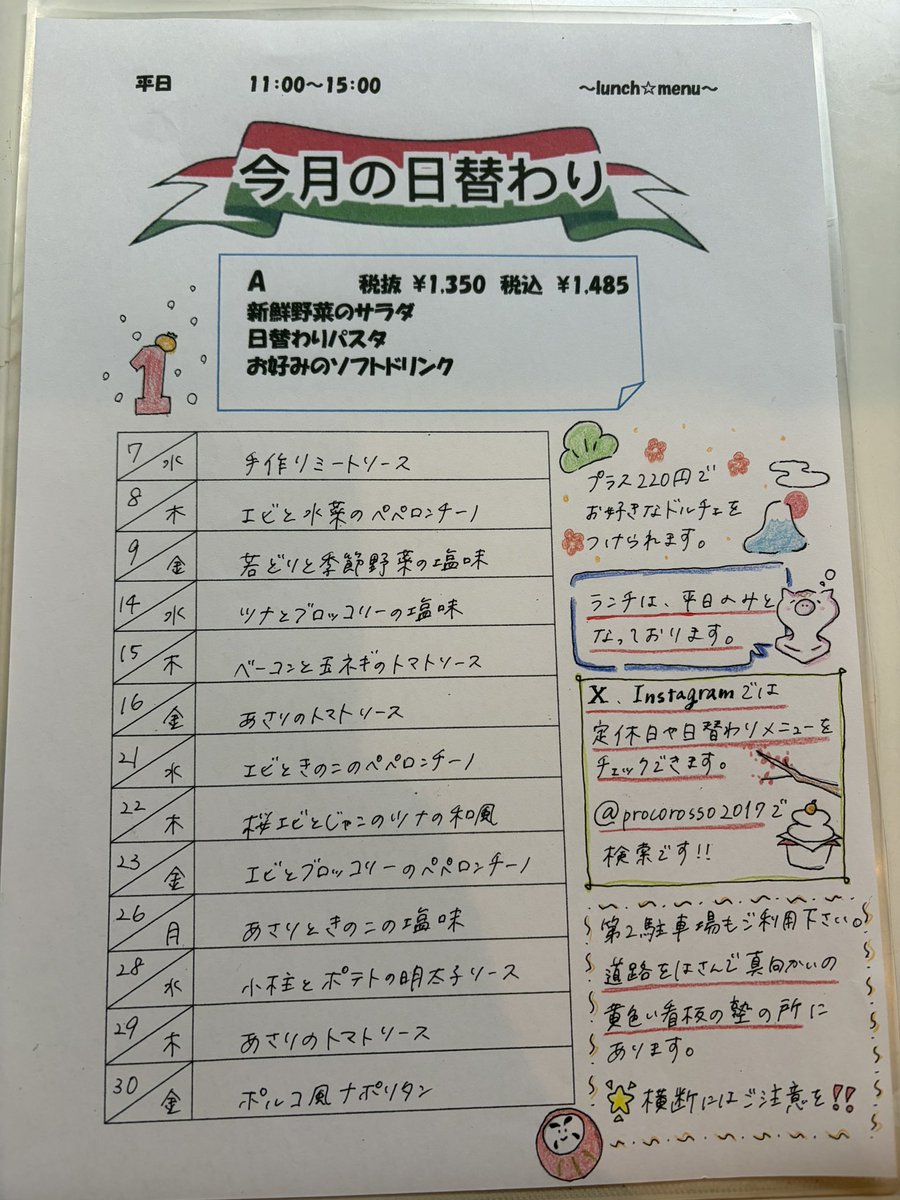 平日 11:00～15:00 ～lunch☆menu～
今月の日替わり
A 税抜 ¥1,350 税込 ¥1,485
新鮮野菜のサラダ
日替わりパスタ
お好みのソフトドリンク
1
7/水 手作りミートソース
8/木 エビと水菜のペペロンチーノ
9/金 若どりと季節野菜の塩味
14/水 ツナとブロッコリーの塩味
15/木 ベーコンと玉ネギのトマトソース
16/金 あさりのトマトソース
21/水 エビときのこのペペロンチーノ
22/木 桜エビとじゃこのツナの和風
23/金 エビとブロッコリーのペペロンチーノ
26/月 あさりときのこの塩味
28/水 小柱とポテトの明太子ソース
29/木 あさりのトマトソース
30/金 ポルコ風ナポリタン
プラス220円で
お好きなドルチェを
つけられます。
ランチは、平日のみと
なっております。
X、Instagramでは
定休日や日替わりメニューを
チェックできます。
@procorosso2017で
検索です!!
第2駐車場もご利用下さい。
道路をはさんで真向かいの
黄色い看板の塾の所に
あります。
横断にはご注意を!!